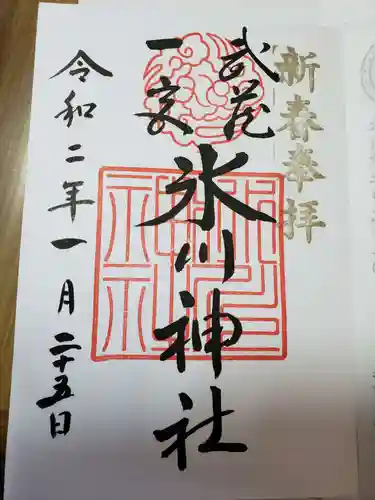 新春奉拝
武蔵
一宮
氷川神社
令和二年一月二十五日